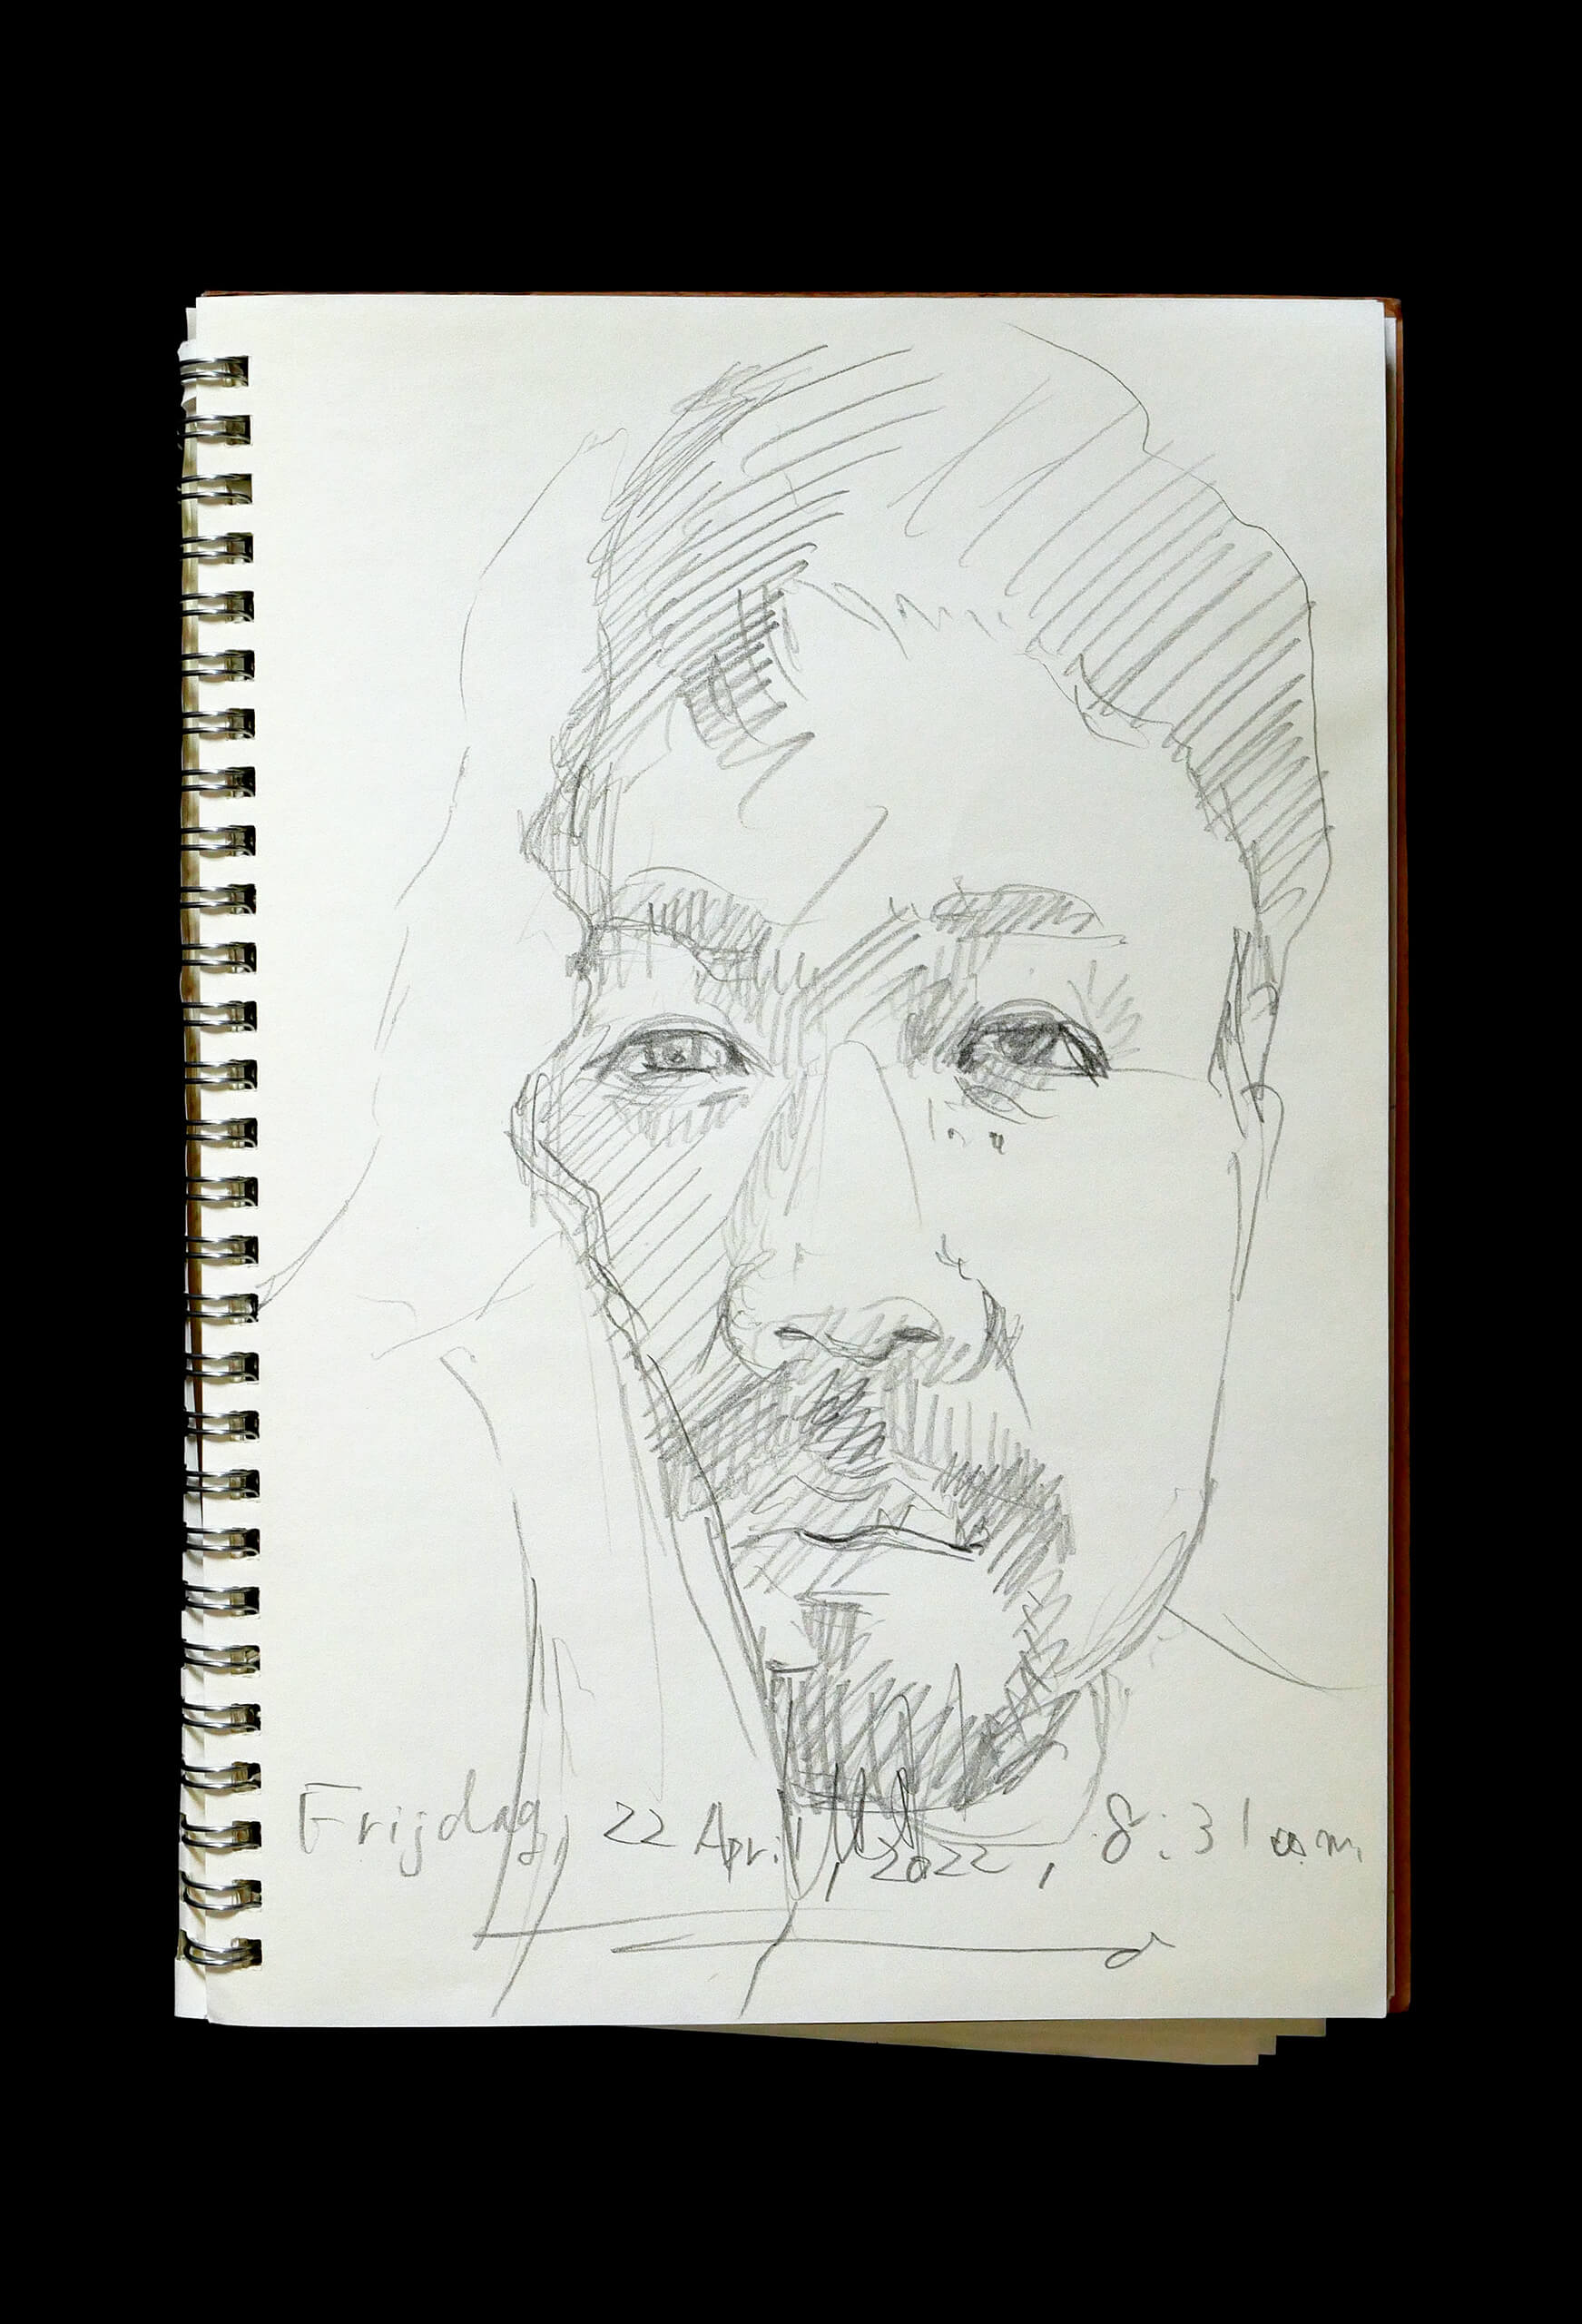 Frijdag, 22 April, 2022, 8:31 am